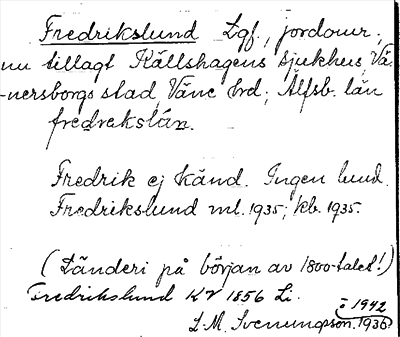 Fredrikslund Lgf., jordomr.,
nu tillagt Källshagens sjukhus, Vä-
nersborgs stad, Väne hrd; Älfsb. län
fredrekslún.
Fredrik ej känd. Ingen lund.
Fredrikslund ml. 1935; kb. 1935.
(Länderi på början av 1800-talet!)
Fredrikslund Kr 1856 Li.
i 1942
L.M. Svenungsson. 1936